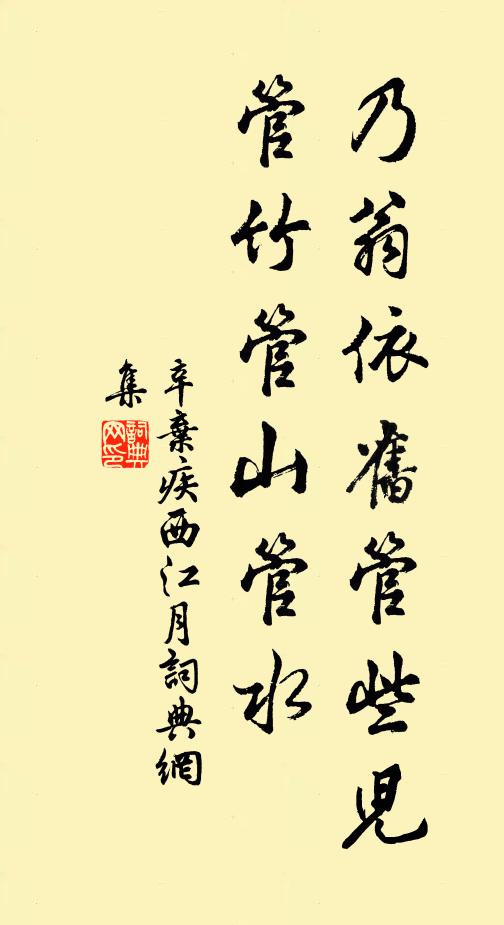 乃翁依舊管些兒
管竹管山管水
辛棄疾西江月詞典網
集
詞典
网印